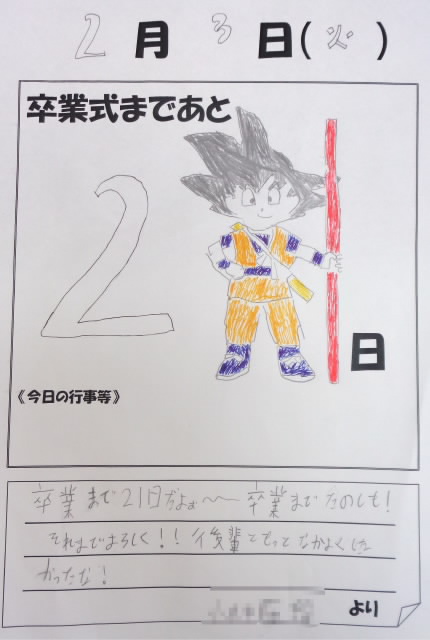 2月3日(火)
卒業式まであと
2
日
《今日の行事等》
卒業まで21日だよぉ〜〜卒業までたのしも!
それまでよろしく!!後輩ともってなかよくした
かったな!
より